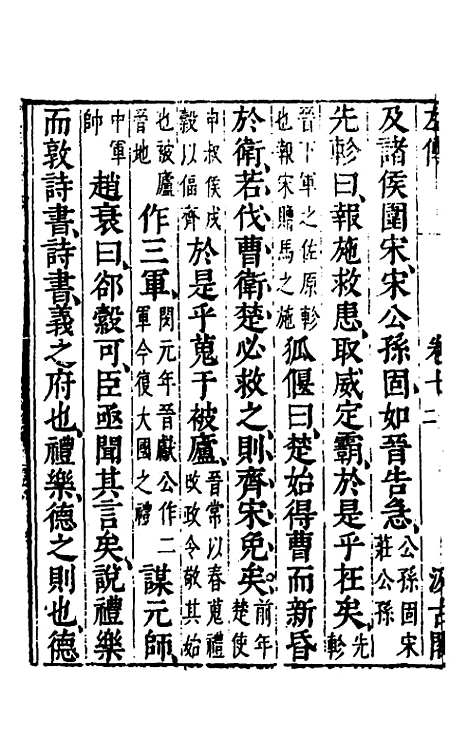 左傳 卷七 二 汲古閣
及諸侯圍宋、宋公孫固如晉告急、公孫固宋莊公孫
先軫曰、報施救患、取威定霸、於是乎在矣、先軫
晉下軍之佐原軫也報宋贈馬之施狐偃曰、楚始得曹而新昏
於衛、若伐曹衛、楚必救之、則齊宋免矣、前年楚使
申叔侯戍穀以偪齊於是乎蒐于被廬、晉常以春蒐禮改政令敬其始
也被廬晉地作三軍、閔元年晉獻公作二軍今復大國之禮謀元帥、
中軍帥趙衰曰、郤縠可、臣亟聞其言矣、說禮樂
而敦詩書、詩書、義之府也、禮樂、德之則也、德